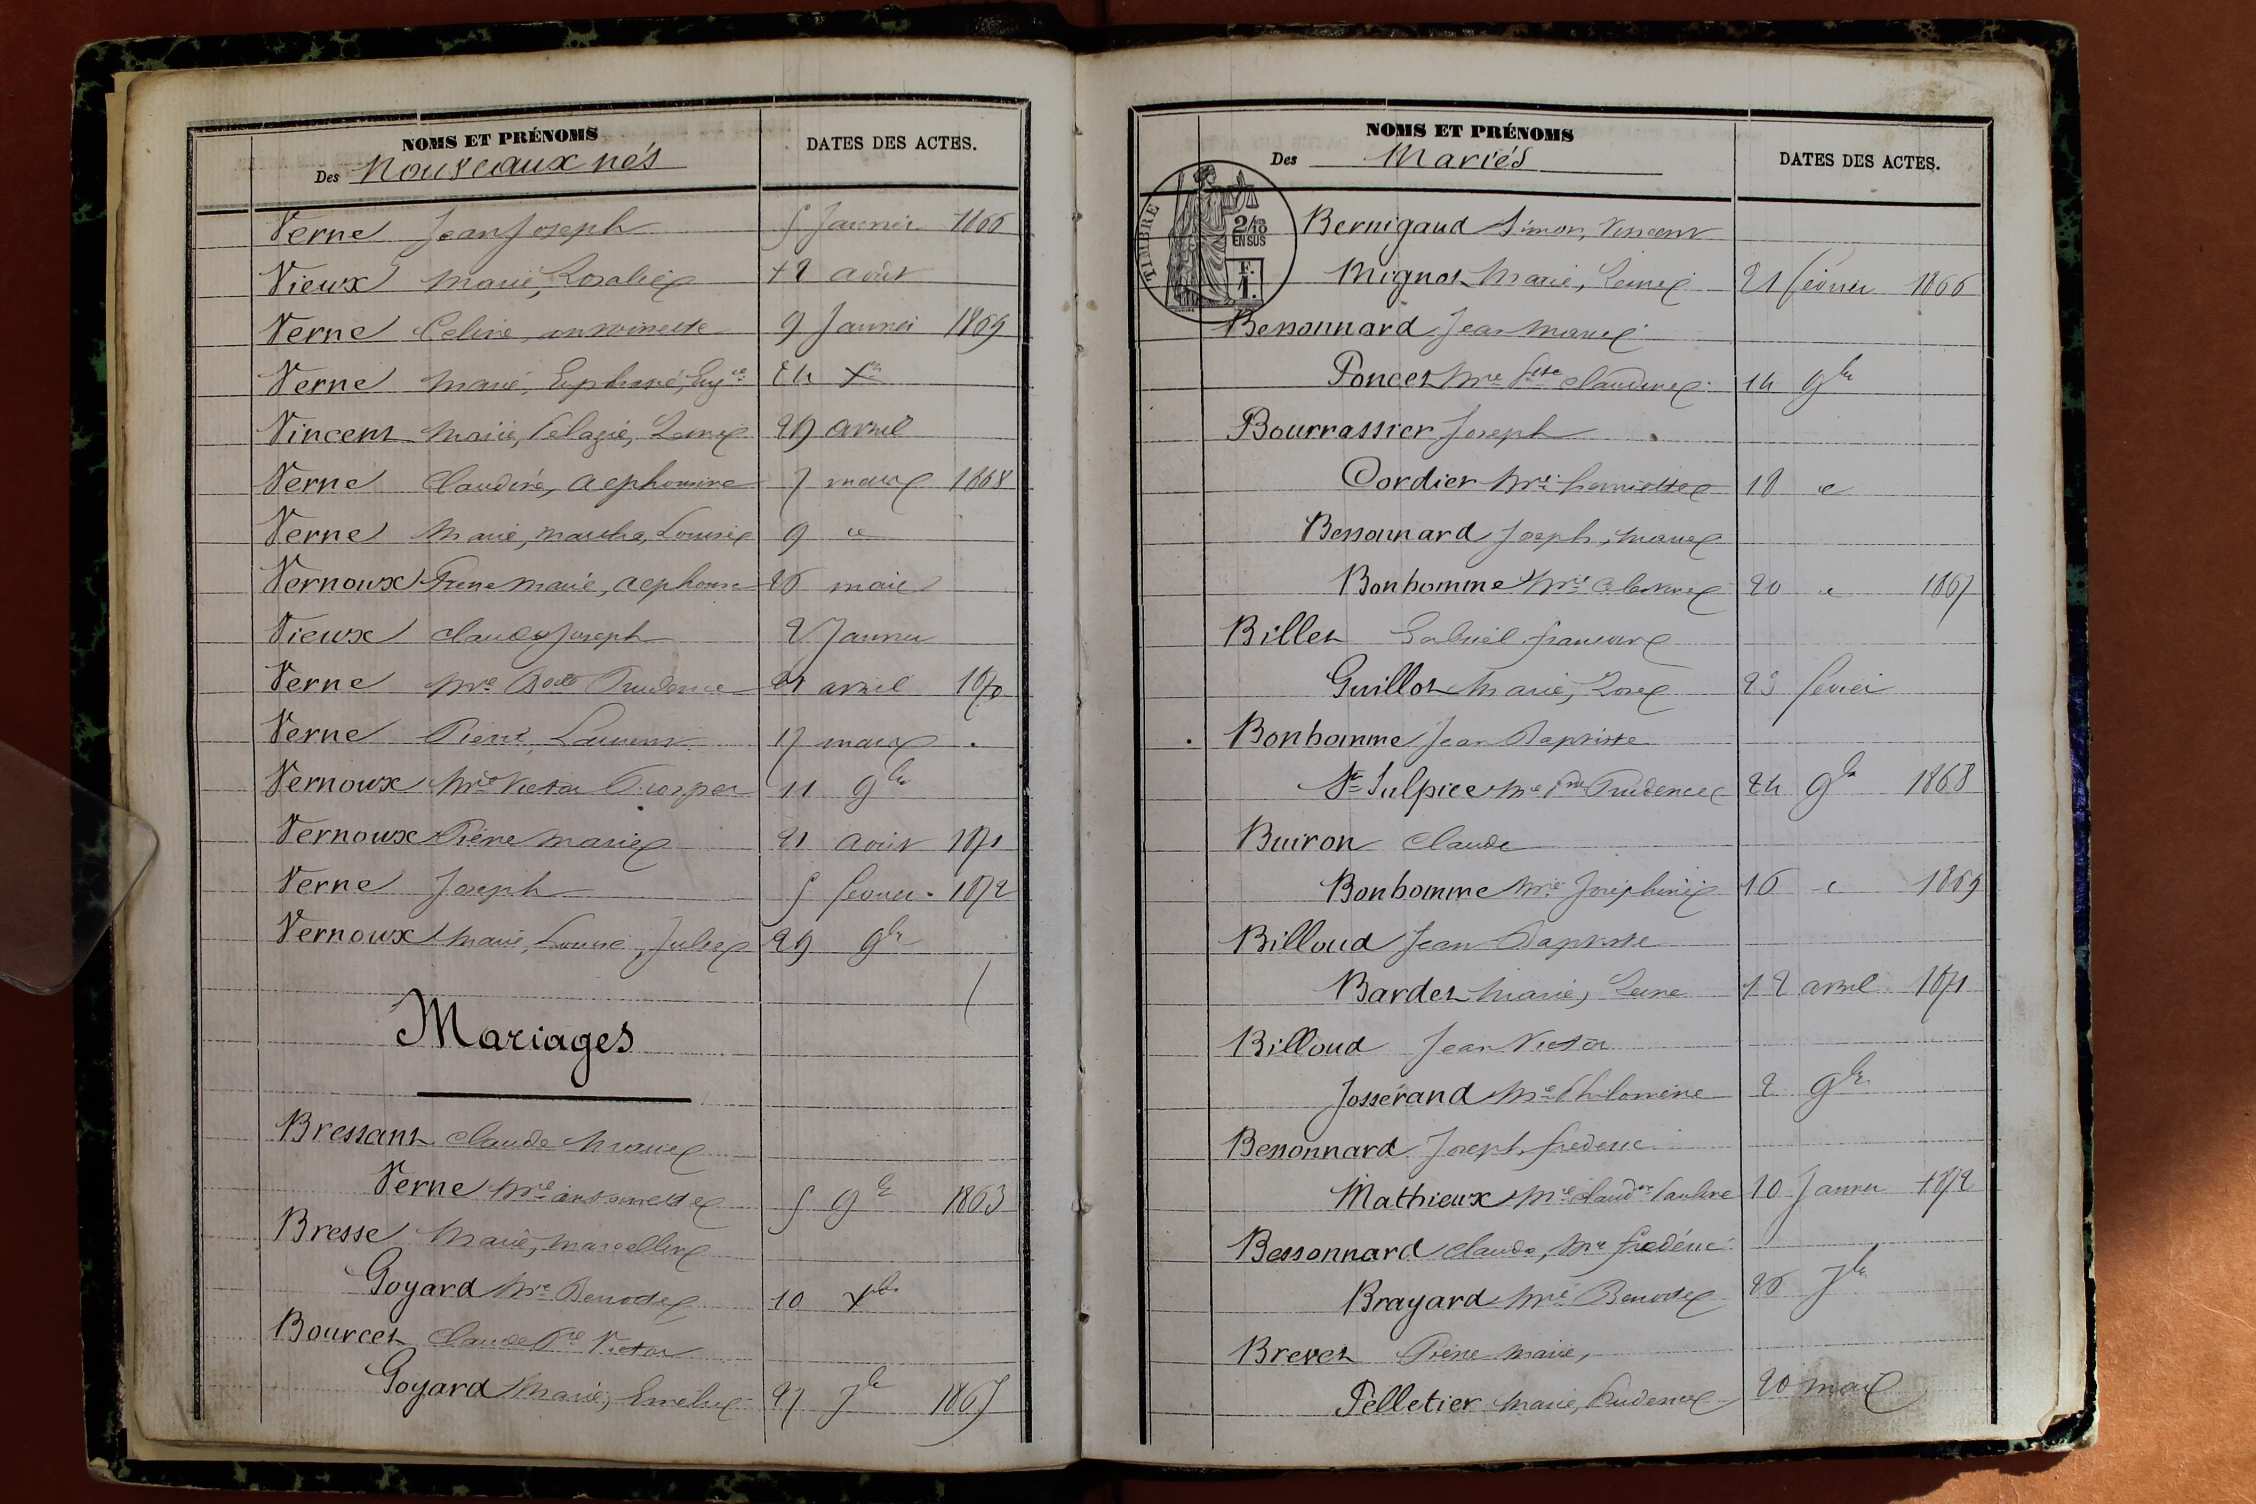 NOMS ET PRÉNOMS
Des Nouveaux nés
DATES DES ACTES.
Verne Jean Joseph 5 Janvier 1866
Vieux Marie, Rosalie 12 août
Verne Celine, antoinette 9 Janvier 1869
Verne Marie, Euphrasie, 24 Xbre
Vincent Marie, Pelagie, 29 avril
Verne Claudine, Alphonsine 7 mars 1868
Verne Marie, Marthe, Louise 9 "
Vernoux Pierre Marie, Alphonse 26 mai
Vieux Claude Joseph 2 Janvier
Verne Mie Prudence 21 avril 1870
Verne Pierre, Laurent 17 mars
Vernoux Mie Victor Prosper 11 9bre
Vernoux Pierre Marie 21 août 1871
Verne Joseph 5 février 1872
Vernoux Marie, Louise, Julie 29 9bre
Mariages
Bressant Claude Marie
Verne Mie antoinette 5 9bre 1863
Bresse Marie, Marcellin
Goyard Mie Benoite 10 Xbre
Bourcet Claude Victor
Goyard Marie, Emélie 27 7bre 1865
NOMS ET PRÉNOMS
Des Mariés
DATES DES ACTES.
TIMBRE
2/10
EN SUS
F.
1.
Bernigaud Simon, Vincent
Mignot Marie, 21 février 1866
Bessonnard Jean Marie
Poncet Mie Claudine 14 9bre
Bourrassier Joseph
Cordier Mie 18 "
Bessonnard Joseph, Marie
Bonhomme Mie 20 " 1867
Billet Gabriel françois
Guillot Marie, Rose 23 février
Bonhomme Jean Baptiste
St Sulpice Mie Prudence 24 9bre 1868
Buiron Claude
Bonhomme Mie Joséphine 16 " 1869
Billoud Jean Baptiste
Bardet Marie, 12 avril 1871
Billoud Jean Victor
Josserand Mie Philomène 2 9bre
Bessonnard Joseph frédéric
Mathieux Mie Claudine Pauline 10 Janvier 1872
Bessonnard Claude, Mie frédéric
Brayard Mie Benoite 26 7bre
Brevet Pierre Marie,
Pelletier Marie, Prudence 20 mai